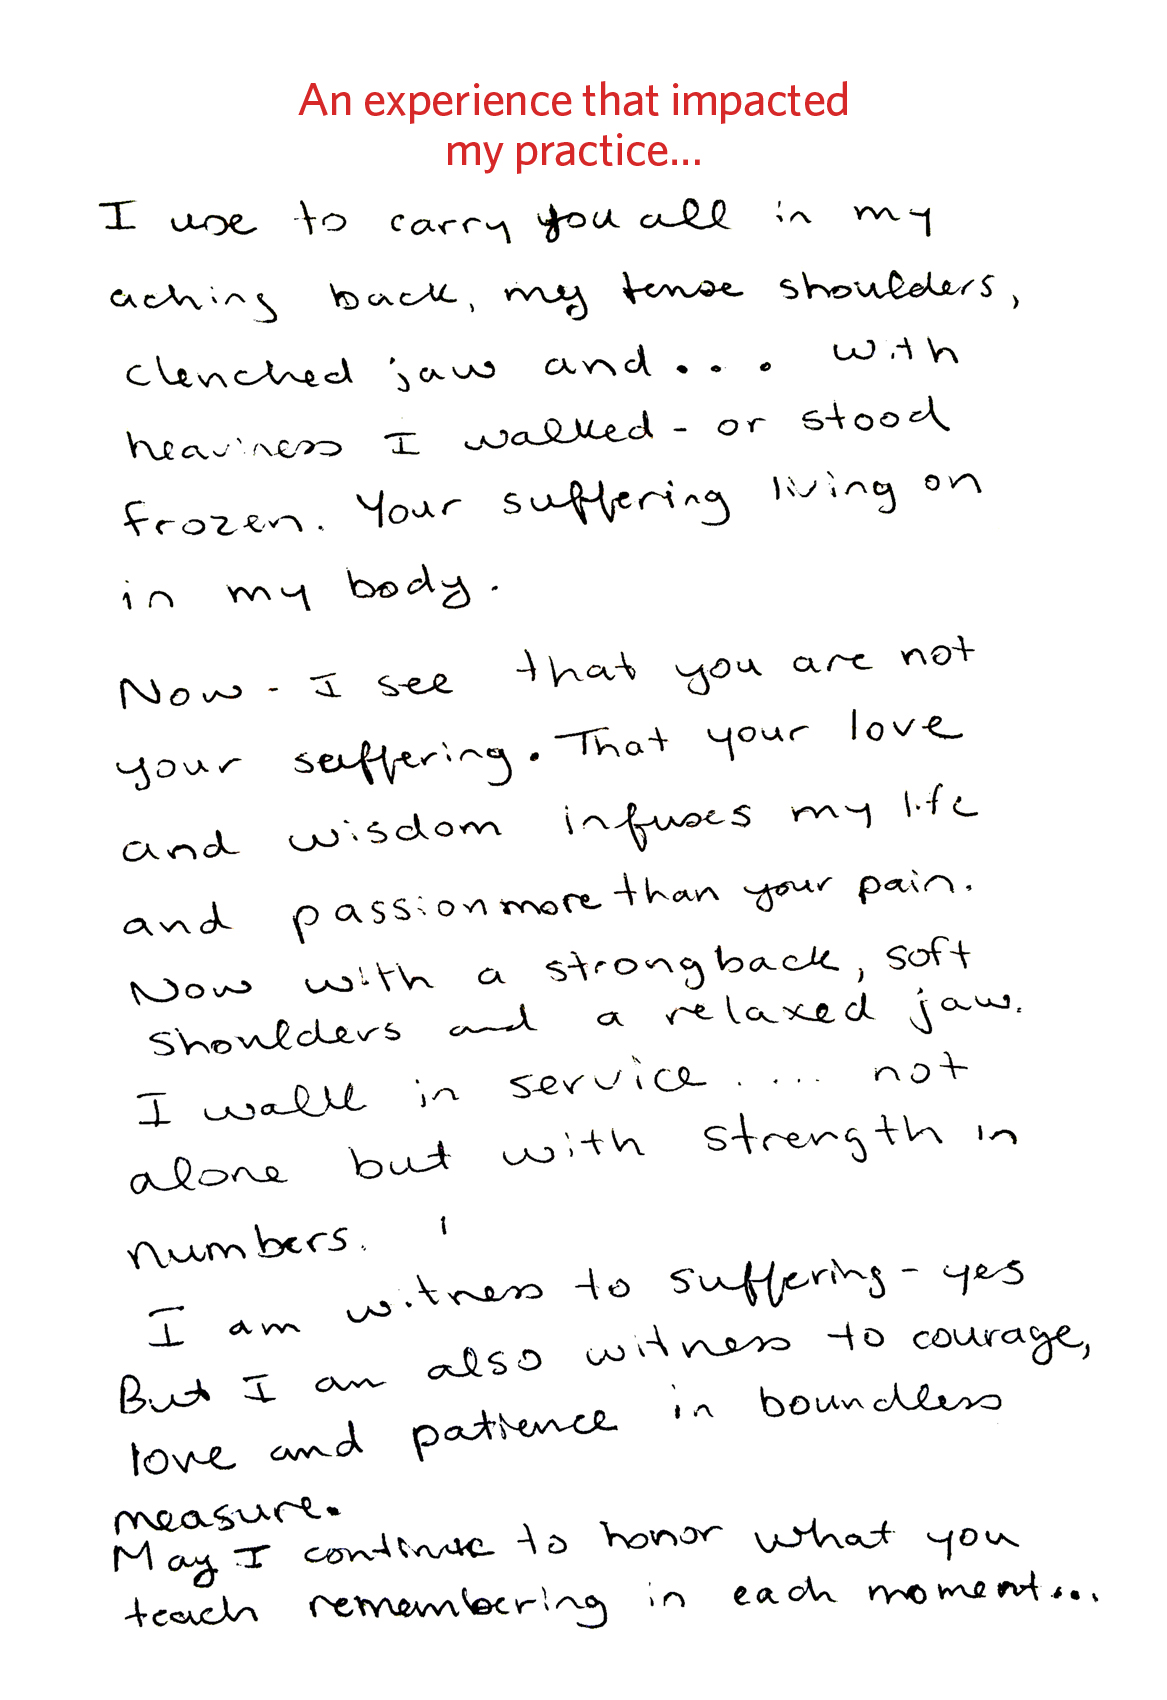 An experience that impacted
my practice...
I use to carry you all in my
aching back, my tense shoulders,
clenched jaw and... with
heaviness I walked - or stood
frozen. Your suffering living on
in my body.
Now - I see that you are not
your suffering. That your love
and wisdom infuses my life
and passion more than your pain.
Now with a strong back, soft
shoulders and a relaxed jaw.
I walk in service .... not
alone but with strength in
numbers.
I am witness to suffering - yes
But I am also witness to courage,
love and patience in boundless
measure.
May I continue to honor what you
teach remembering in each moment...